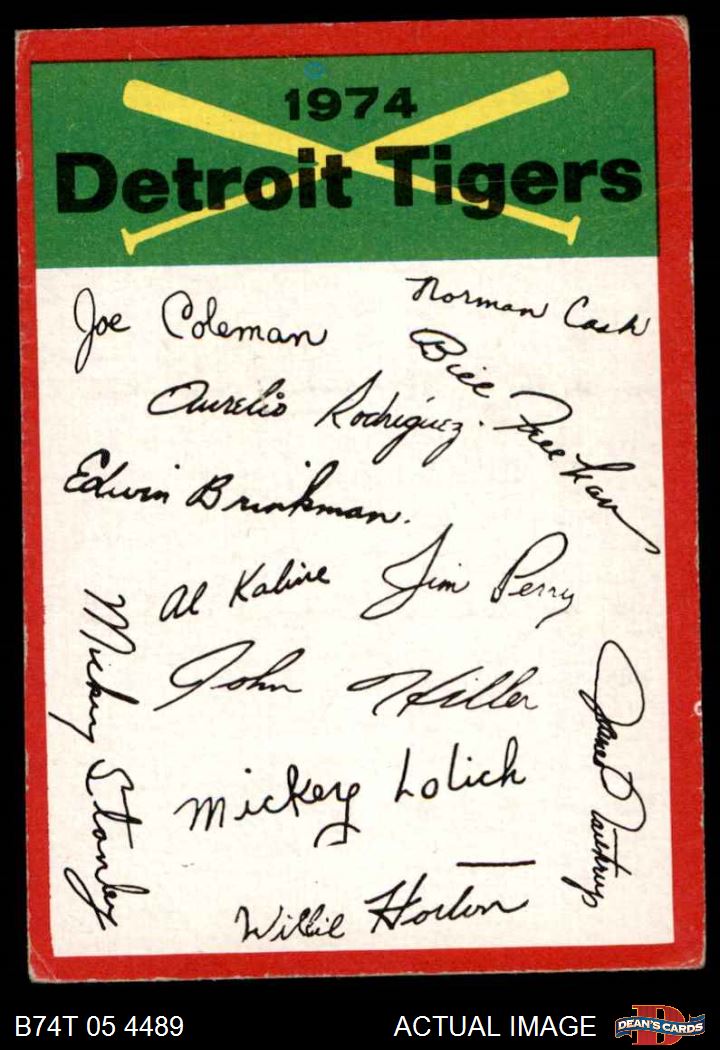 1974
Detroit Tigers
Joe Coleman
Norman Cash
Bill Freehan
Aurelio Rodriguez.
Edwin Brinkman.
Al Kaline
Jim Perry
Mickey Stanley
John Hiller
James Northrup
Mickey Lolich
Willie Horton
B74T 05 4489
ACTUAL IMAGE
D
DEAN'S CARDS